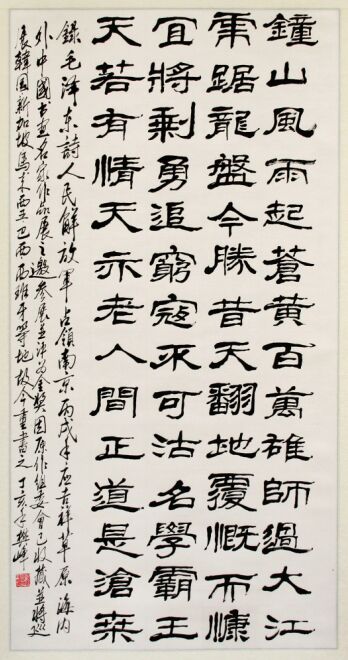 鐘山風雨起蒼黃百萬雄師過大江
虎踞龍盤今勝昔天翻地覆慨而慷
宜將剩勇追窮寇不可沽名學霸王
天若有情天亦老人間正道是滄桑
錄毛澤东詩人民解放軍占領南京丙戌年应吉祥草原海内
外中國书画名家作品展之邀参展並评为金奖因原作组委會已收藏並將巡
展韓国新加坡馬来西亚巴西西班牙等地故今重書之丁亥年峰